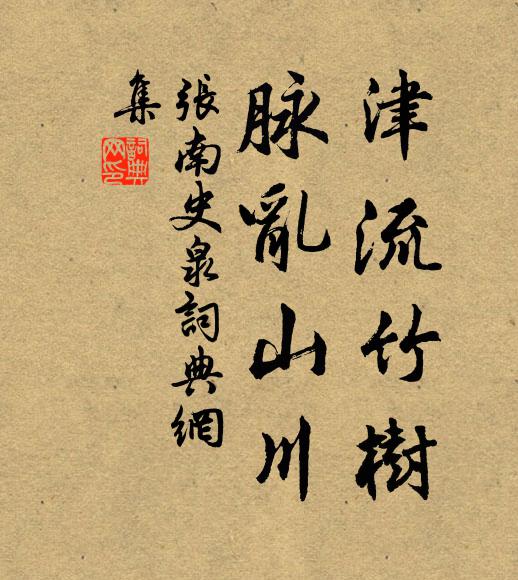 津流竹樹
脉亂山川
張南史泉詞典網
集
詞典網印